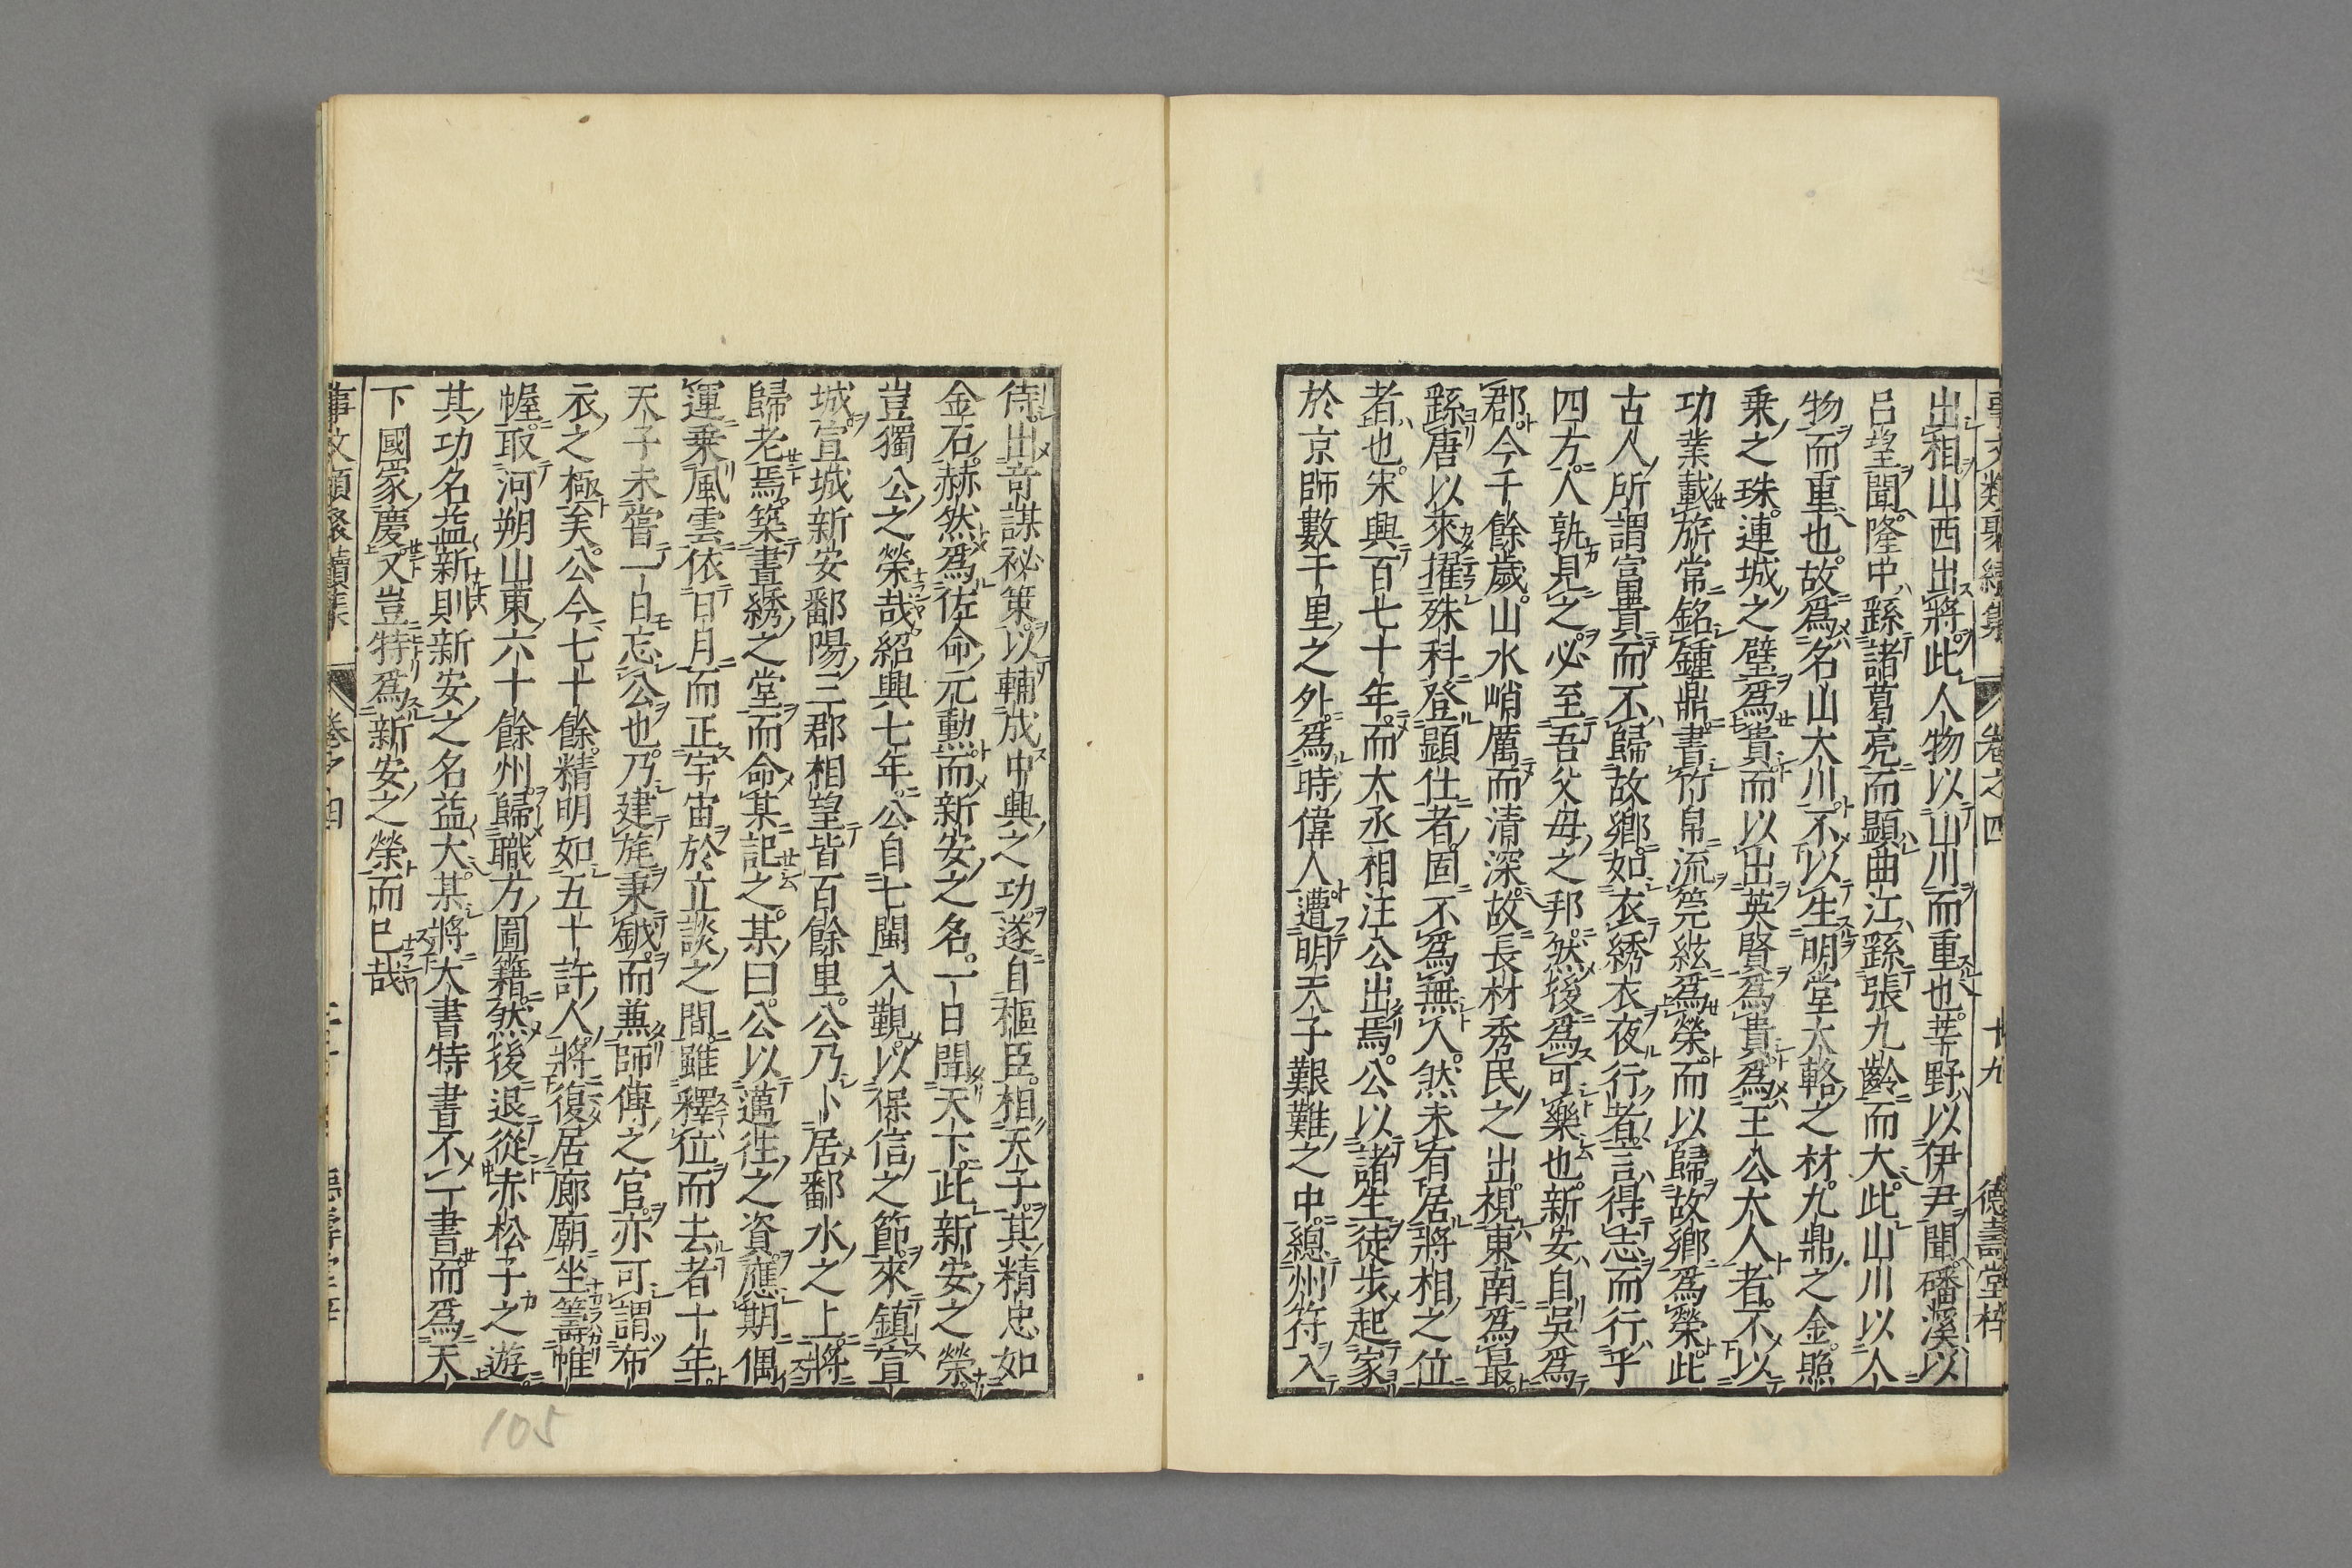 事文類聚續集 卷之四 十九 德壽堂梓
出相山西出將此人物以山川而重也莘野以伊尹聞磻溪以
呂望聞隆中繇諸葛亮而顯曲江繇張九齡而大此山川以人
物而重也故爲名山大川不以生明堂大輅之材九鼎之金照
乗之珠連城之璧爲貴而以出英賢爲貴爲王公大人者不以
功業載旂常銘鍾鼎書竹帛流筦絃爲榮而以歸故鄉爲榮此
古人所謂富貴而不歸故鄉如衣綉衣夜行者言得志而行乎
四方人孰見之必至吾父母之邦然後爲可樂也新安自吳爲
郡今千餘歲山水峭厲而清深故長材秀民之出視東南爲最
繇唐以來擢殊科登顯仕者固不爲無人然未有居將相之位
者也宋興百七十年而太丞相汪公出焉公以諸生徒步起家
於京師數千里之外爲時偉人遭明天子艱難之中總州符入
侍出奇謀祕策以輔成中興之功遂自樞臣相天子其精忠如
金石赫然爲佐命元勲而新安之名一日聞天下此新安之榮
豈獨公之榮哉紹興七年公自七閩入覲以保信之節來鎮宣
城宣城新安鄱陽三郡相望皆百餘里公乃卜居鄱水之上將
歸老焉築晝綉之堂而命某記之某曰公以邁往之資應期偶
運乗風雲依日月而正宇宙於立談之間雖釋位而去者十年
天子未嘗一日忘公也乃建旄秉鉞而兼師傅之官亦可謂布
衣之極矣公今七十餘精明如五十許人將復居廊廟坐籌帷
幄取河朔山東六十餘州歸職方圖籍然後退從赤松子之遊
其功名益新則新安之名益大某將大書特書不一書而爲天
下國家慶又豈特爲新安之榮而已哉
事文類聚續集 卷之四
105